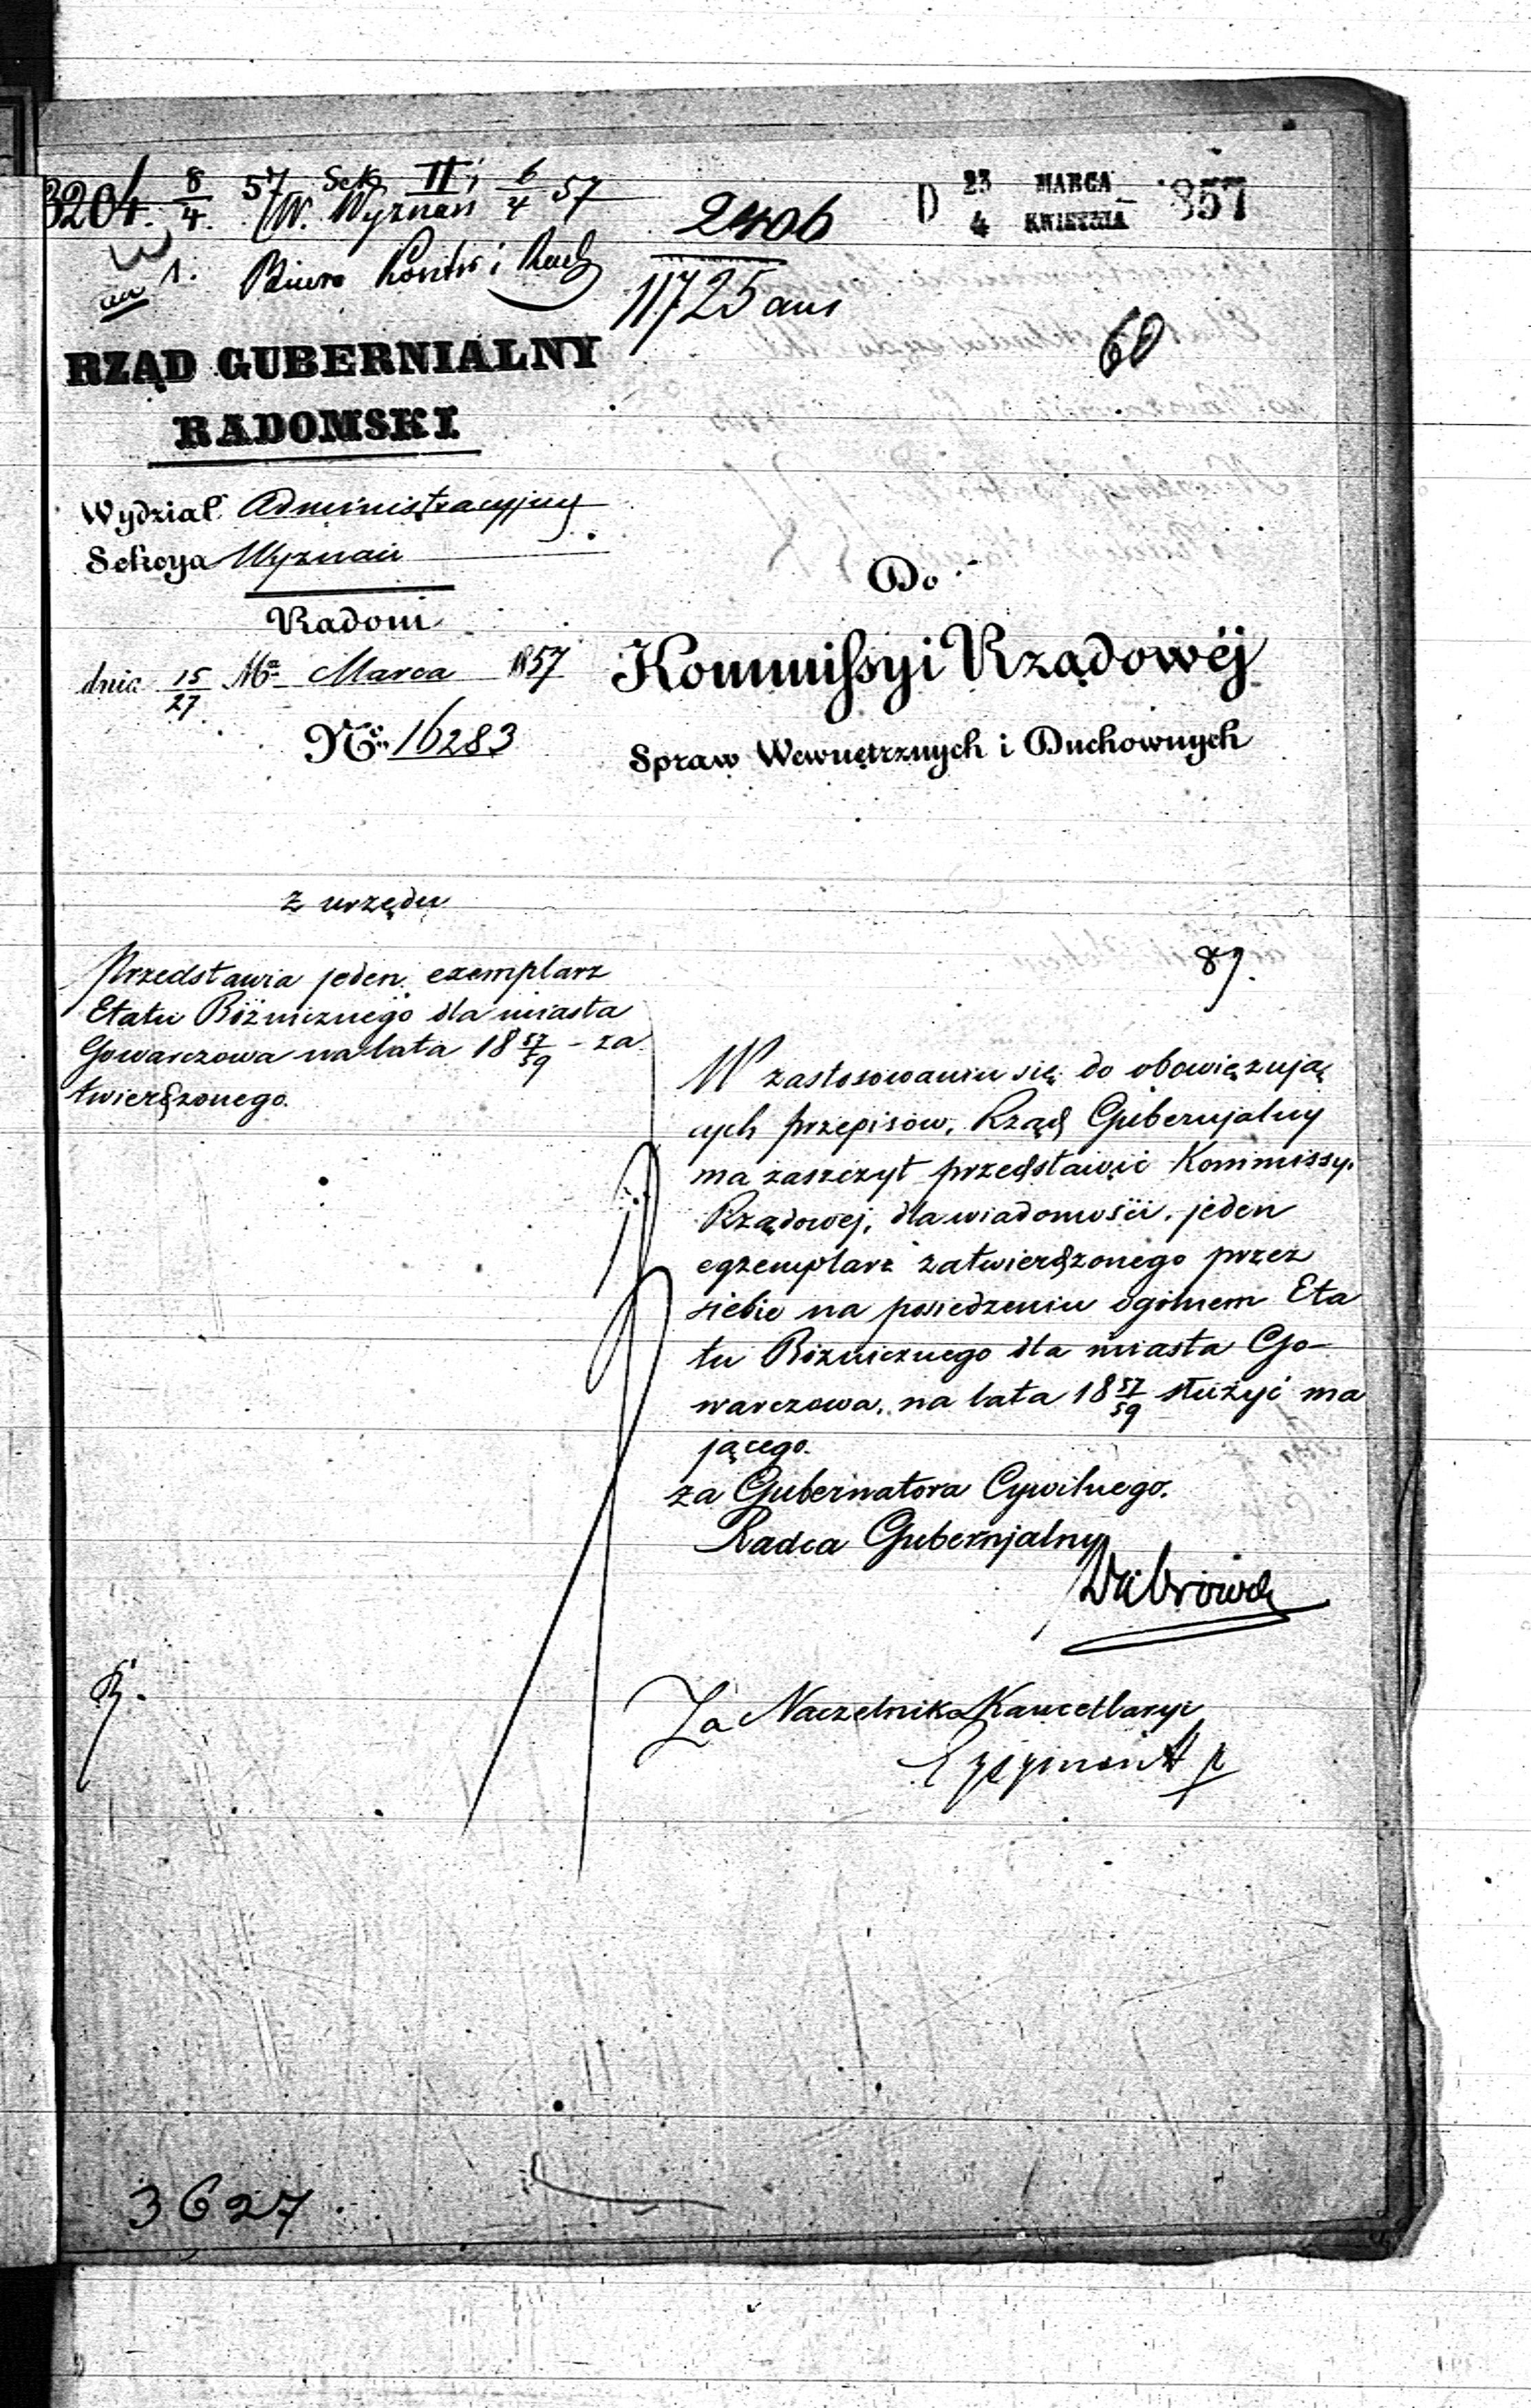 3204. 8/4. 57 Sek. II i 6/4 57
W. Wyznań
1. Biuro Kontr i Rach
2406
11725
D 23 MARCA
4 KWIETNIA 857
60
RZĄD GUBERNIALNY
RADOMSKI
Wydział Administracyjny
Sekcya Wyznań
Radom
dnia 15/27 Ma Marca 1857
No. 16283
Do
Kommissyi Rządowéj
Spraw Wewnętrznych i Duchownych
z urzędu
Przedstawia jeden exemplarz
Etatu Bóżnicznego dla miasta
Gowarczowa na lata 18 57/59 - za
twierdzonego.
87.
W zastosowaniu się do obowięzują
cych przepisów, Rząd Gubernjalny
ma zaszczyt przedstawić Kommissyi
Rządowej, dla wiadomości, jeden
egzemplarz zatwierdzonego przez
siebie na posiedzeniu ogólnem Eta
tu Bóżnicznego dla miasta Go-
warczowa, na lata 18 57/59 służyć ma
jącego.
za Gubernatora Cywilnego.
Radca Gubernjalny
Za Naczelnika Kancellaryi
3627